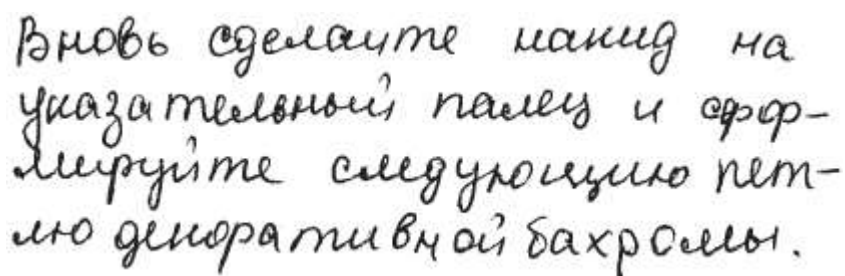 Вновь сделайте накид на
указательный палец и сфор-
мируйте следующую пет-
лю декоративной бахромы.